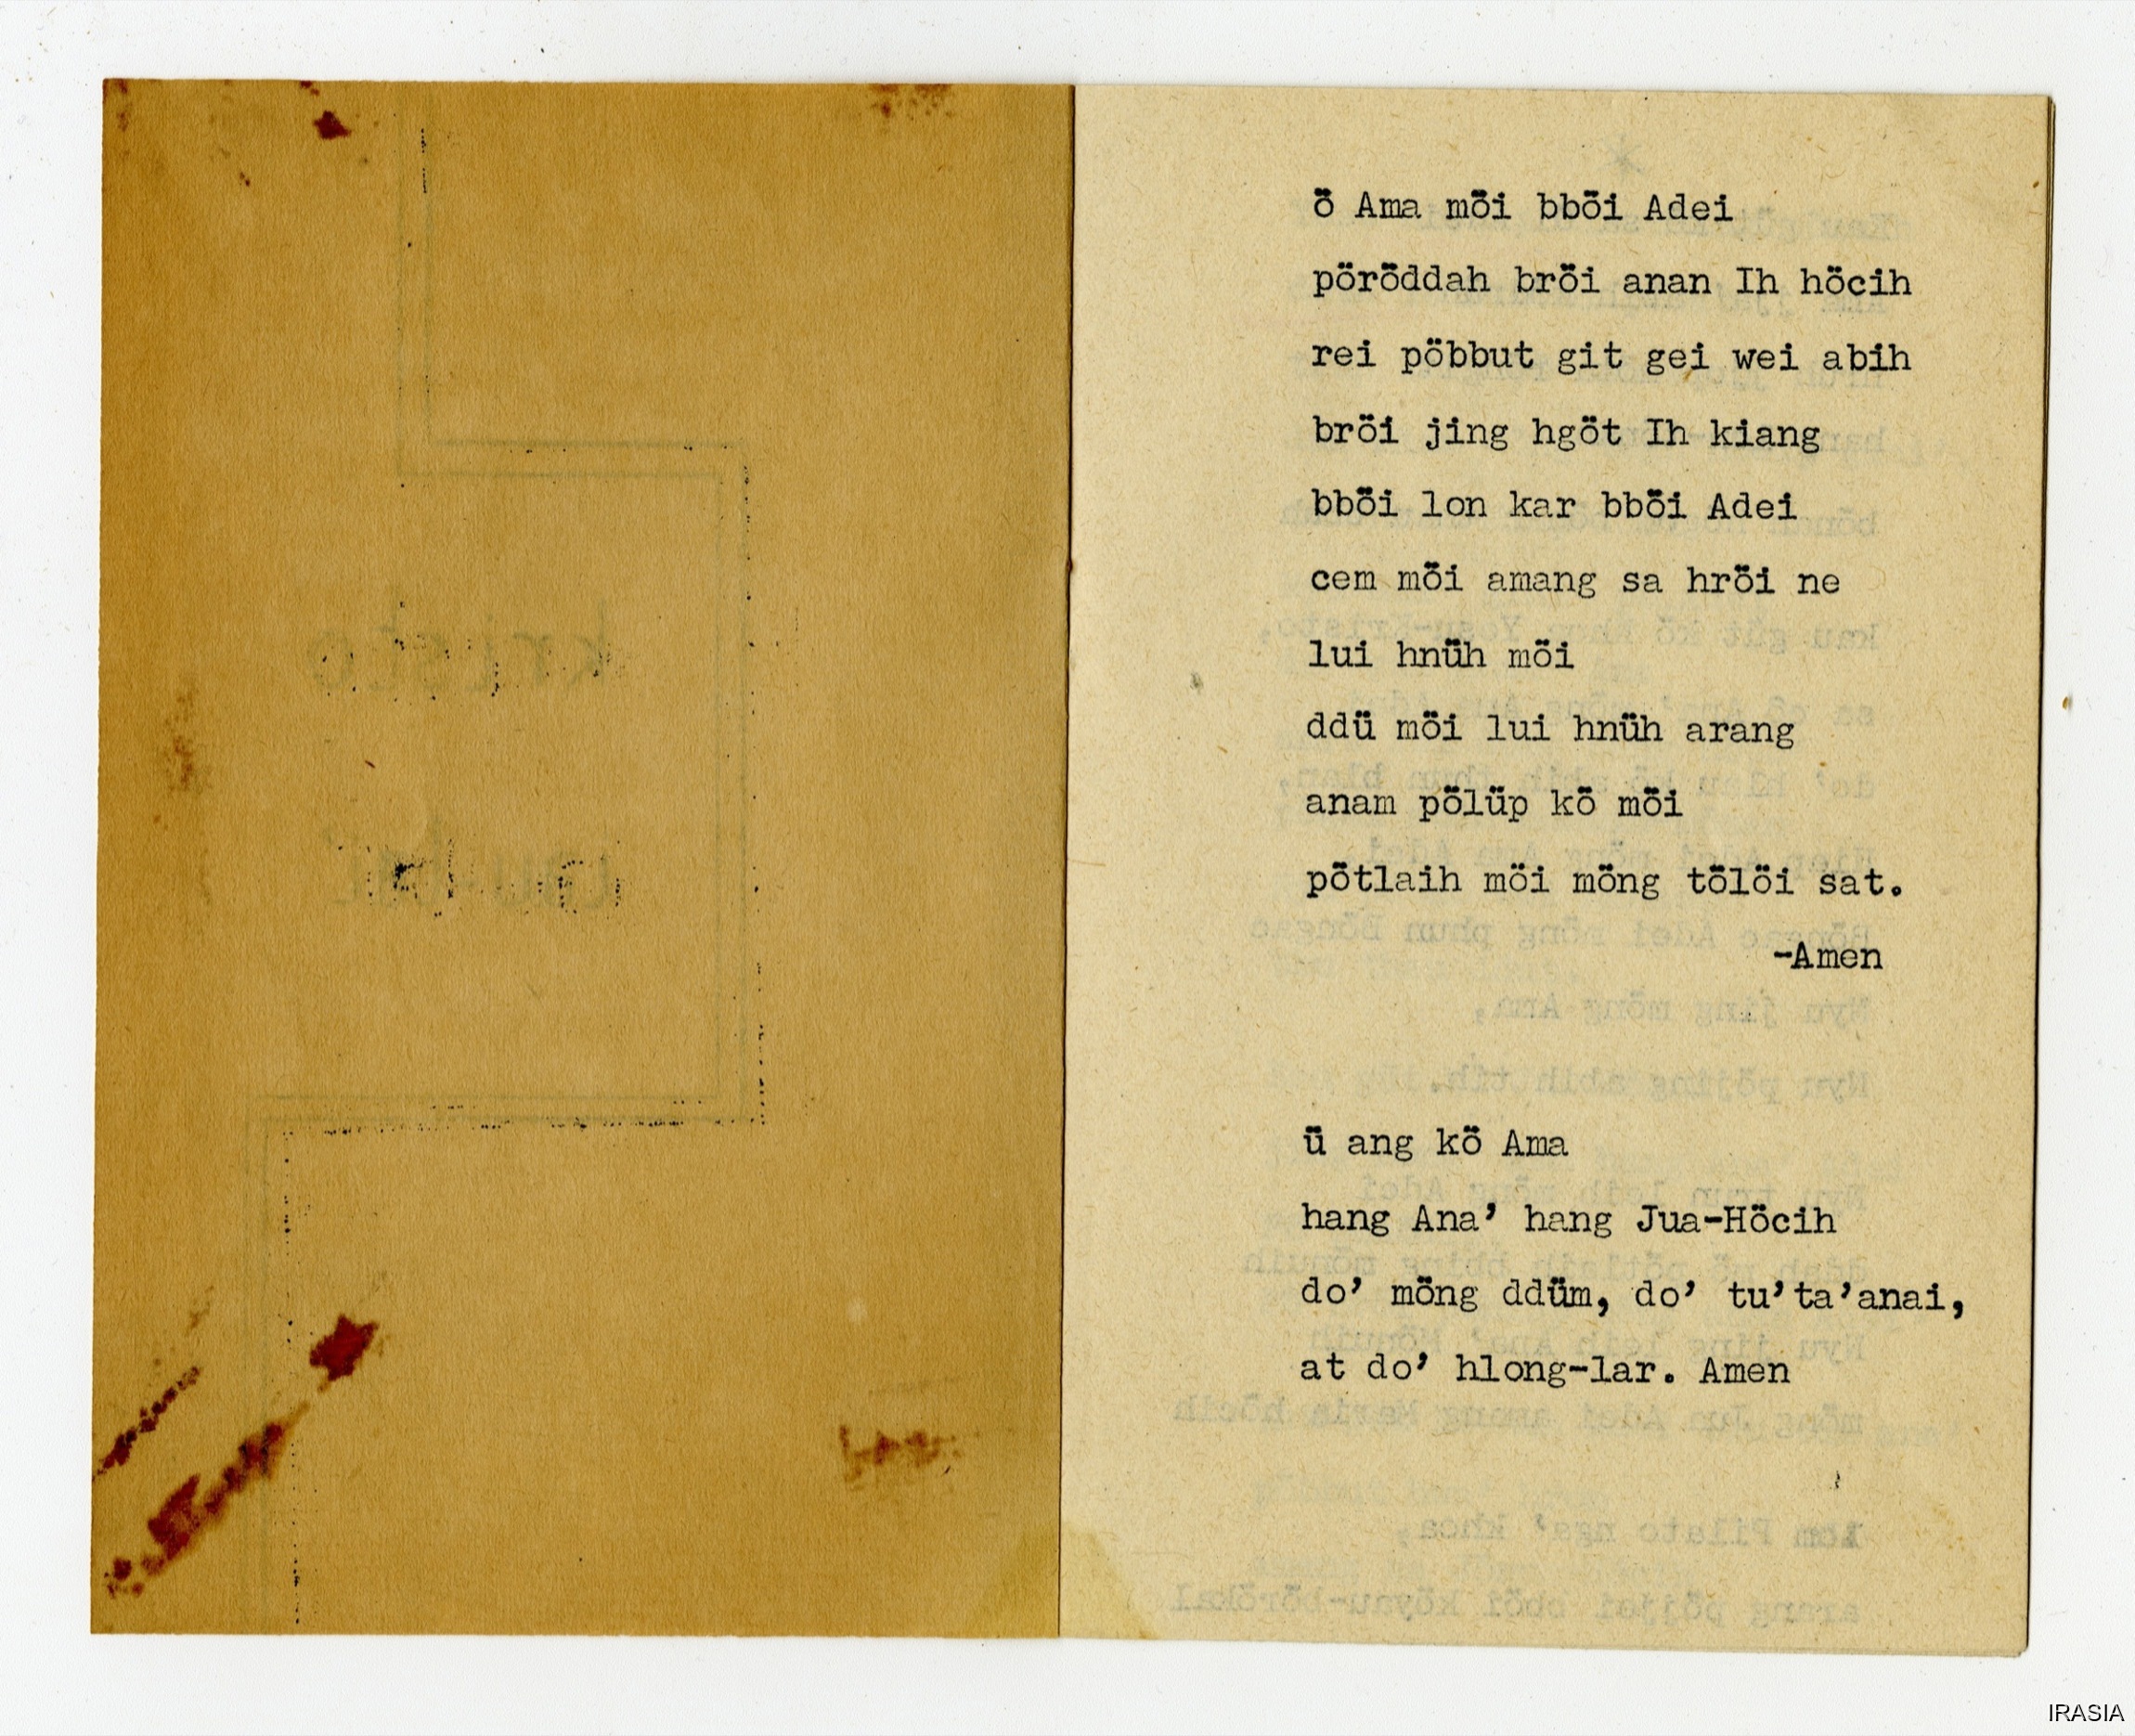 ö Ama möi bböi Adei
pöröddah bröi anan Ih höcih
rei pöbbut git gei wei abih
bröi jing hgöt Ih kiang
bböi lon kar bböi Adei
cem möi amang sa hröi ne
lui hnüh möi
ddü möi lui hnüh arang
anam pölüp kö möi
pötlaih möi möng tölöi sat.
-Amen
ü ang kö Ama
hang Ana’ hang Jua-Höcih
do’ möng ddüm, do’ tu’ta’anai,
at do’ hlong-lar. Amen
IRASIA